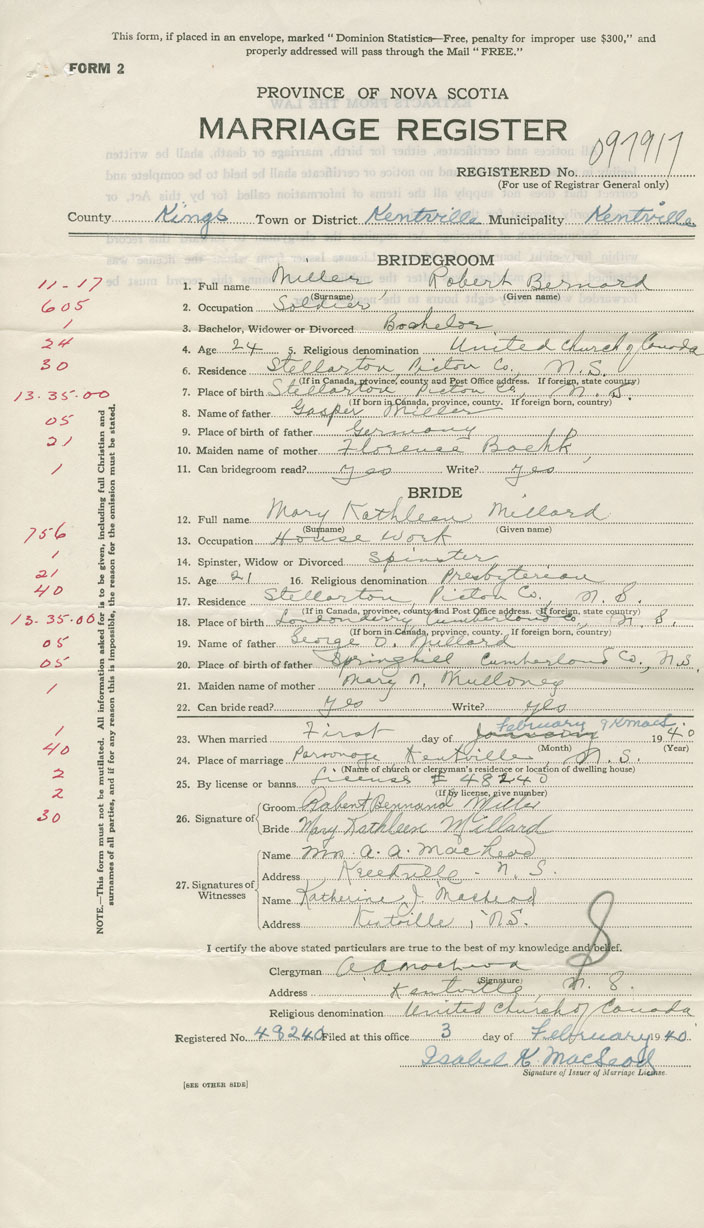 This form, if placed in an envelope, marked "Dominion Statistics—Free, penalty for improper use $300," and
properly addressed will pass through the Mail "FREE."
FORM 2
PROVINCE OF NOVA SCOTIA
MARRIAGE REGISTER
097917
REGISTERED No.
(For use of Registrar General only)
County Kings Town or District Kentville Municipality Kentville
BRIDEGROOM
11-17
1. Full name Miller, Robert Bernard
(Surname) (Given name)
605
2. Occupation Soldier
1
3. Bachelor, Widower or Divorced Bachelor
24
4. Age 24 5. Religious denomination United Church of Canada
30
6. Residence Stellarton Pictou Co, N.S.
(If in Canada, province, county and Post Office address. If foreign, state country)
13.35.00
7. Place of birth Stellarton Pictou Co, N.S.
(If born in Canada, province, county. If foreign born, country)
05
8. Name of father Gasper Miller
9. Place of birth of father Germany
21
10. Maiden name of mother Florence
1
11. Can bridegroom read? Yes Write? Yes
BRIDE
12. Full name Mary Kathleen Millard
(Surname) (Given name)
756
13. Occupation House Work
1
14. Spinster, Widow or Divorced Spinster
21
15. Age 21 16. Religious denomination Presbyterian
40
17. Residence Stellarton Pictou Co. N.S.
(If in Canada, province, county and Post Office address. If foreign, state country)
13.35.00
18. Place of birth Londonderry Cumberland Co, N.S.
(If born in Canada, province, county. If foreign born, country)
05
19. Name of father George D. Millard
05
20. Place of birth of father Springhill Cumberland Co., N.S.
1
21. Maiden name of mother Mary A. Mulloney
22. Can bride read? Yes Write? Yes
February IKMacL.
1
23. When married First day of January 1940
(Month) (Year)
40
24. Place of marriage Parsonage Kentville, N.S.
(Name of church or clergyman's residence or location of dwelling house)
2
25. By license or banns License # 48240
(If by license, give number)
2
30
26. Signature of
Groom Robert Bernard Miller
Bride Mary Kathleen Millard
27. Signatures of Witnesses
Name Mrs. A. A. MacLeod
Address Kentville - N.S.
Name Katherine J. MacLeod
Address Kentville, N.S.
I certify the above stated particulars are true to the best of my knowledge and belief.
Clergyman A A MacLeod
(Signature)
Address Kentville, N.S.
Religious denomination United Church of Canada
Registered No. 48240 Filed at this office 3 day of February 1940.
Isabel K. MacLeod
Signature of Issuer of Marriage License.
[SEE OTHER SIDE]
NOTE.—This form must not be mutilated. All information asked for is to be given, including full Christian and
surnames of all parties, and if for any reason this is impossible, the reason for the omission must be stated.